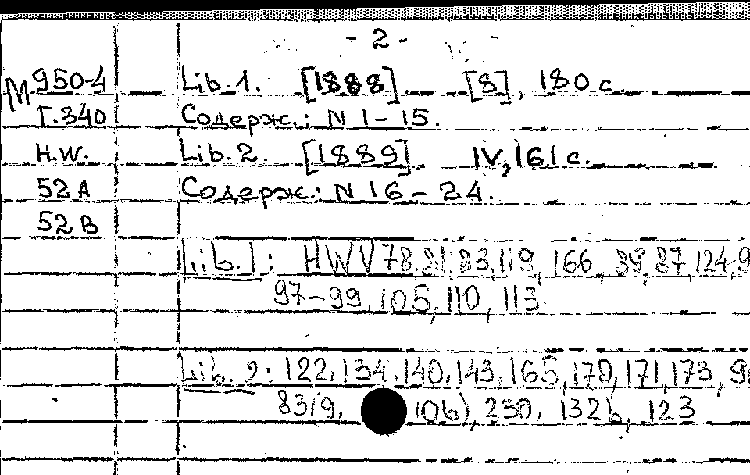 - 2 -
М 950-4 Lib. 1. [1888] [8], 180 с.
Г. 340 Содерж.: N 1-15.
H.W. Lib. 2. [1889] IV, 161 с.
52 A Содерж: N 16-24.
52 B
Lib. 1: HWV 78, 81, 83, 119, 166, 89, 87, 124, 9
97-99, 105, 110, 113
Lib. 2: 122, 134, 140, 143, 165, 170, 171, 173, 9
230, 132b, 123